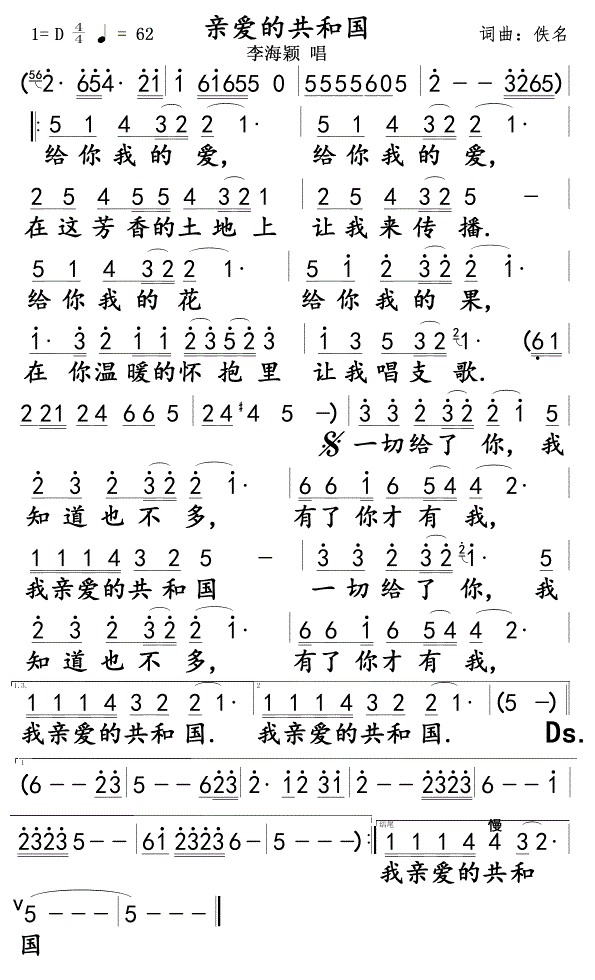 亲爱的共和国
1=D 4/4 ♩= 62 词曲：佚名
李海颖 唱
(56 2· 654· 21 | 1 61655 0 | 5555605 | 2 - - 3265)
‖: 5 1 4 32 2 1· | 5 1 4 32 2 1· |
给你我的爱， 给你我的爱，
2 5 4 55 4 321 | 2 5 4 32 5 - |
在这芳香的土地上 让我来传播.
5 1 4 32 2 1· | 5 1 2 32 2 1· |
给你我的花 给你我的果，
1· 3 2 11 23523 | 1 3 5 32 2 1· (61 |
在 你温暖的怀抱里 让我唱支歌.
2 21 24 66 5 | 24 #4 5 -) | 3 3 2 32 2 1 5 |
𝄋 一切给了 你，我
2 3 2 32 2 1· | 66 16 54 4 2· |
知道也不多， 有了你才有我，
1114 3 2 5 - | 3 3 2 34 2 1· 5 |
我亲爱的共和国 一切给了你， 我
2 3 2 32 2 1· | 66 16 54 4 2· |
知道也不多， 有了你才有我，
1.3. 1 1 1 4 3 2 2 1· | 2 1 1 1 4 3 2 2 1· | (5 -) |
我亲爱的共和国. 我亲爱的共和国. Ds.
1 (6 - - 23 | 5 - - 623 | 2· 12 31 | 2 - - 2323 | 6 - - 1 |
2323 5 - - | 61 2323 6 - | 5 - - -) :‖ 结尾 1 1 1 4 慢 4 3 2· |
我亲爱的共和
V 5 - - - | 5 - - - ‖
国